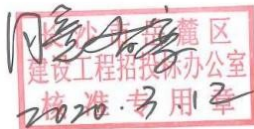 同意备案
长沙市岳麓区
建设工程招投标办公室
核准专用章
2020.3.12